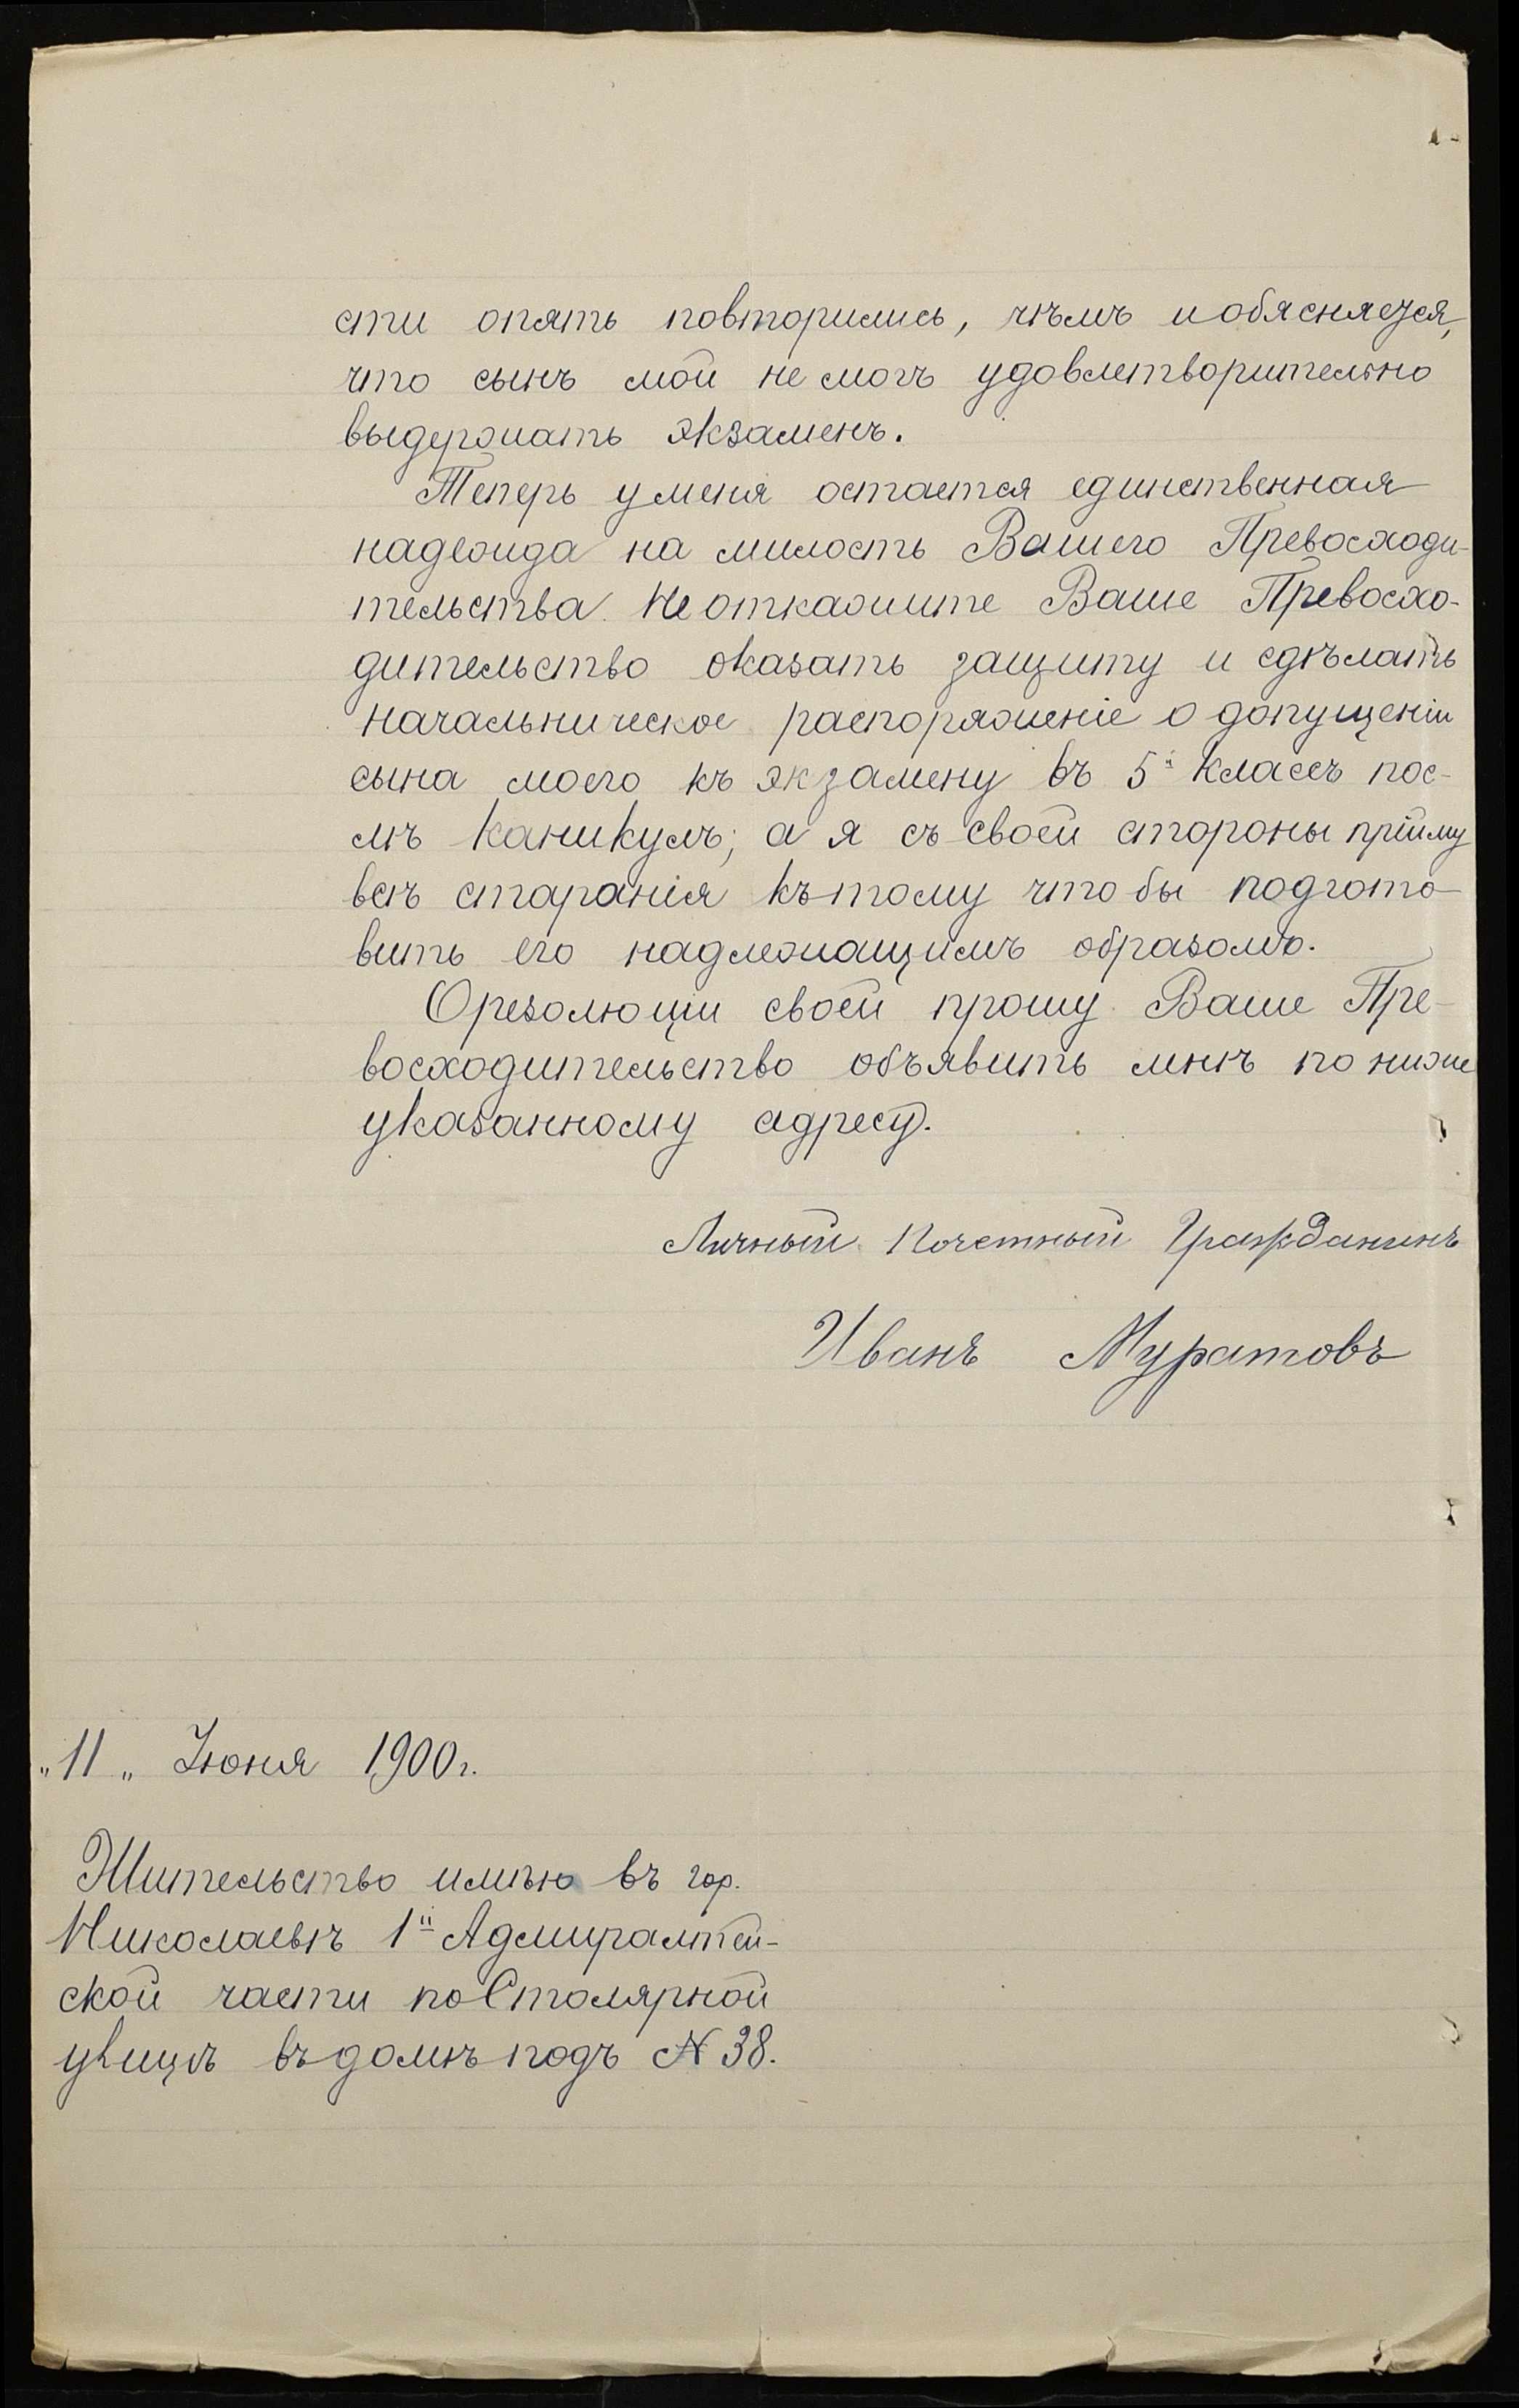 сти опять повторились, чѣмъ и обясняется,
что сынъ мой не могъ удовлетворительно
выдержать экзаменъ.
Теперь у меня остается единственная
надежда на милость Вашего Превосходи-
тельства. Не откажите Ваше Превосхо-
дительство оказать защиту и сдѣлать
начальническое распоряженіе о допущеніи
сына моего къ экзамену въ 5й классъ пос-
лѣ каникулъ; а я съ своей стороны прійму
всѣ старанія къ тому что бы подгото-
вить его надлежащимъ образомъ.
О резолюціи своей прошу Ваше Пре-
восходительство объявить мнѣ по ниже
указанному адресу.
Личный Почетный Гражданинъ
Иванъ Муратовъ
„11„ Іюня 1900 г.
Жительство имѣю въ гор.
Николаевѣ 1й Адмиралтей-
ской части по Столярной
улицѣ въ домѣ подъ № 38.